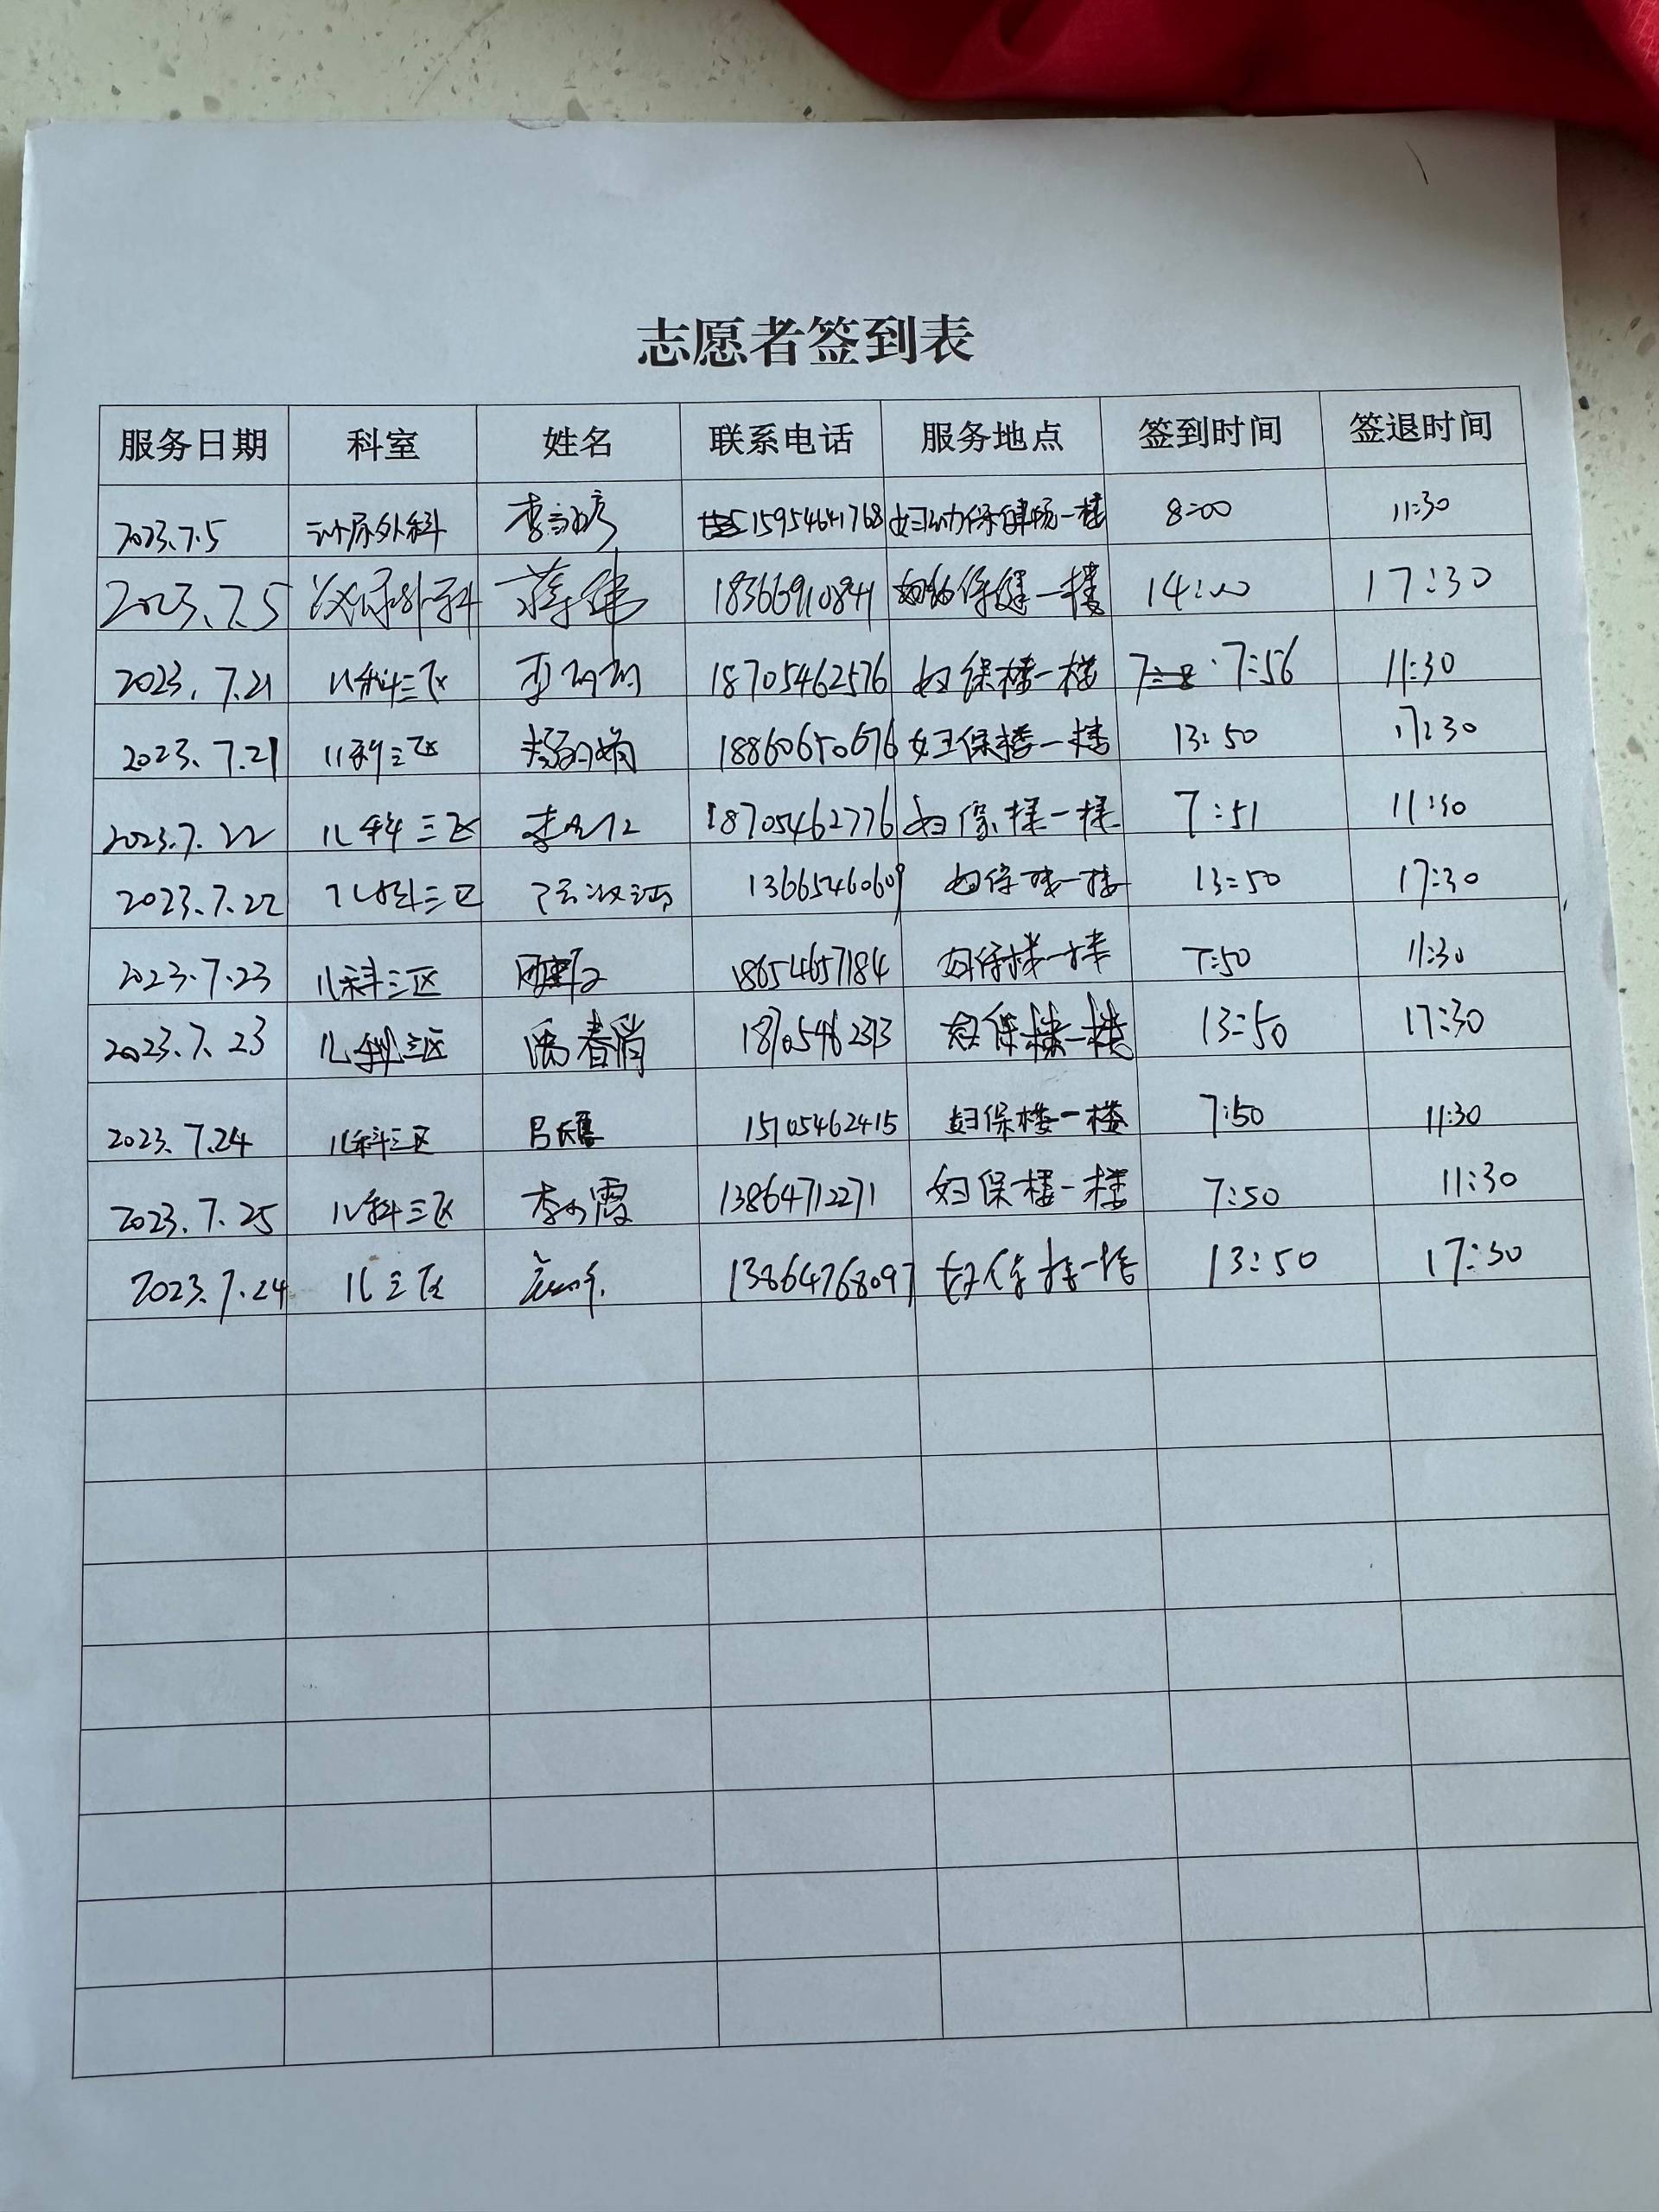 志愿者签到表
服务日期 科室 姓名 联系电话 服务地点 签到时间 签退时间
2023.7.5 泌尿外科 李 15954641768 妇幼保健院一楼 8:00 11:30
2023.7.5 泌尿外科 蒋伟 18366910841 妇幼保健一楼 14:00 17:30
2023.7.21 儿科三区 18705462576 妇保楼一楼 7:56 11:30
2023.7.21 儿科三区 18860650676 妇卫保楼一楼 13:50 17:30
2023.7.22 儿科三区 李 18705462776 妇保楼一楼 7:51 11:30
2023.7.22 儿科三区 13665460609 妇保楼一楼 13:50 17:30
2023.7.23 儿科三区 18654657184 妇保楼一楼 7:50 11:30
2023.7.23 儿科三区 春 妇保楼一楼 13:50 17:30
2023.7.24 儿科三区 吕 15705462415 妇保楼一楼 7:50 11:30
2023.7.25 儿科三区 李小霞 13864712271 妇保楼一楼 7:50 11:30
2023.7.24 儿三区 13864768097 妇保楼一楼 13:50 17:30